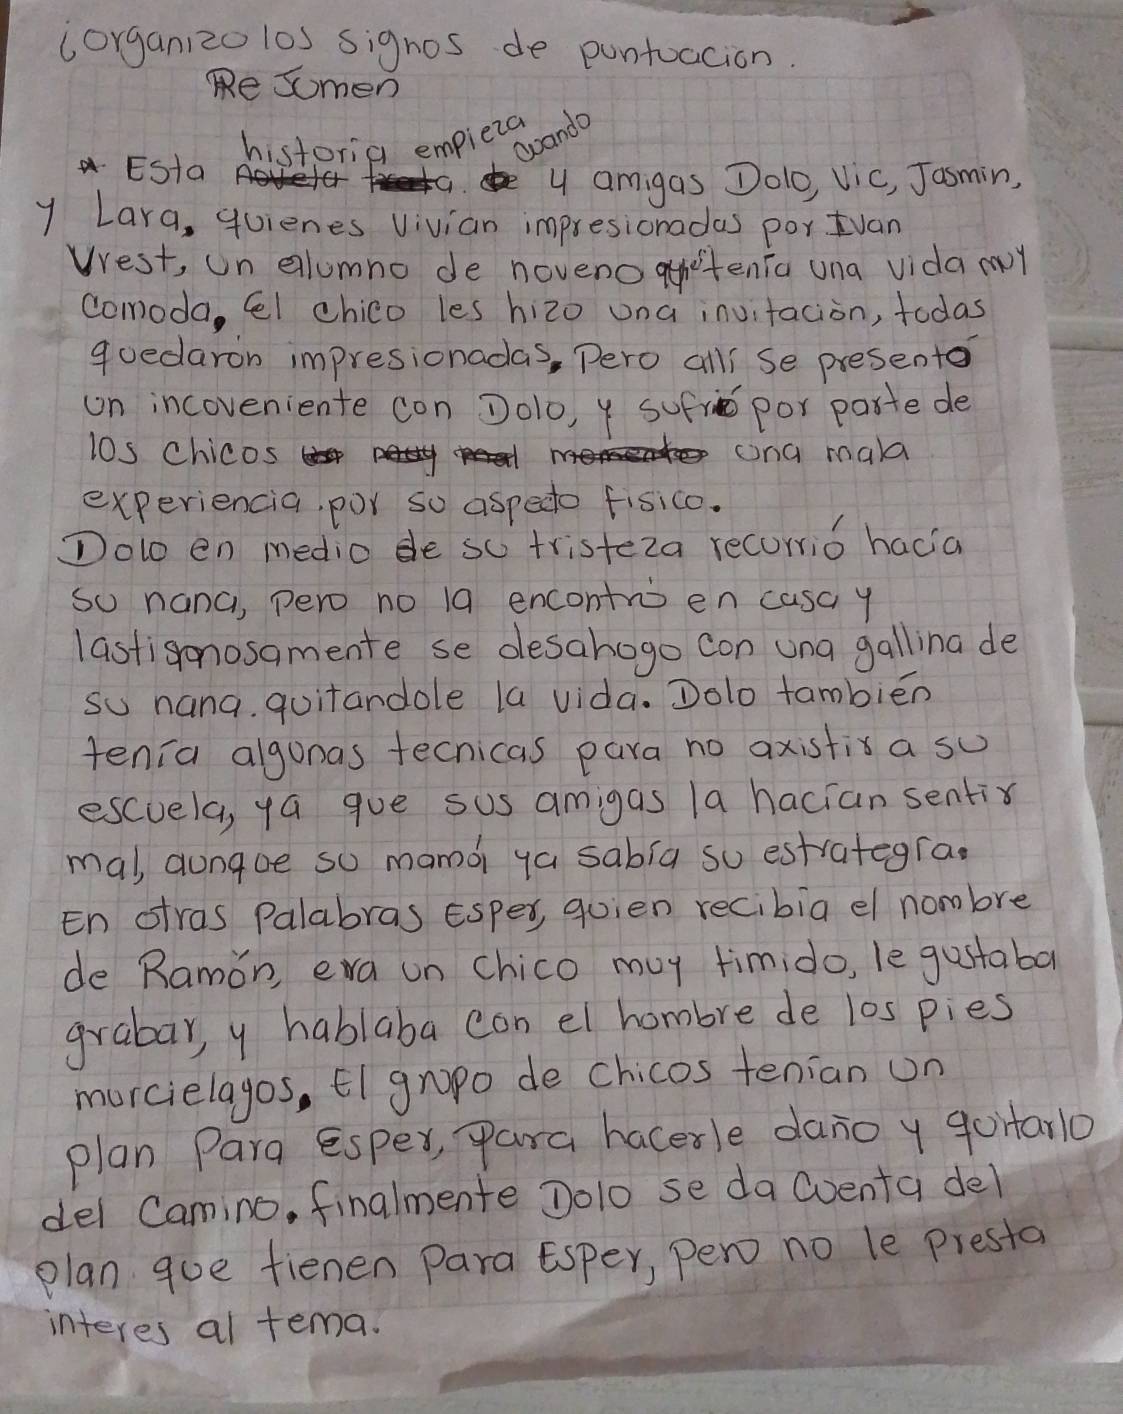 ¿organizo los signos de puntuacion.
ReSumen
historia empieza cuando
* Esta 4 amigas Dolo, Vic, Jasmin,
y Lara, quienes vivian impresionadas por Ivan
Vrest, un alumno de noveno que tenía una vida muy
comoda, el chico les hizo una invitación, todas
quedarón impresionadas, Pero allí se presentó
un incoveniente con Dolo, y sufrió por parte de
los chicos una mala
experiencia por su aspecto fisico.
Dolo en medio de su tristeza recurrió hacía
su nana, pero no la encontró en casa y
lastimosamente se desahogo con una gallina de
su nana. quitandole la vida. Dolo tambien
tenía algunas tecnicas para no axistir a su
escuela, ya que sus amigas la hacían sentir
mal, aunque su mamá ya sabía su estrategía.
En otras Palabras Esper, quien recibia el nombre
de Ramón, era un chico muy timido, le gustaba
grabar, y hablaba con el hombre de los pies
murcielagos. El grupo de chicos tenían un
plan Para Esper, para hacerle daño y quitarlo
del Camino. finalmente Dolo se da cuenta del
plan que tienen Para Esper, pero no le presta
interes al tema.